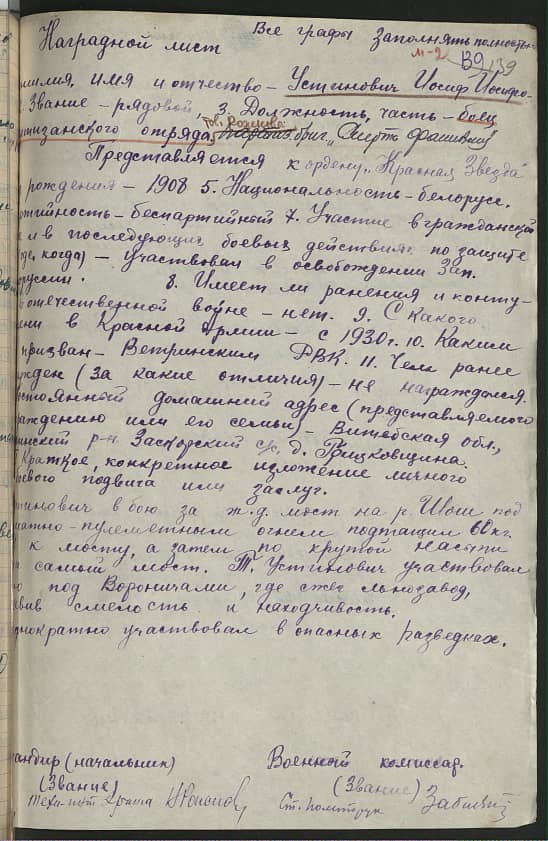 Наградной лист
Все графы заполнять полностью
м-2 139 139
милия, имя и отчество – Устинович Иосиф Иосифо-
Звание – рядовой, 3. Должность, часть – боец
ртизанского отряда, бриг. "Смерть фашизму"
Представляется к ордену "Красная Звезда"
рождения – 1908 5. Национальность – белорус.
ртийность – беспартийный 7. Участие в гражданской
и в последующих боевых действиях по защите
где, когда) – участвовал в освобождении Зап.
оруссии. 8. Имеет ли ранения и конту-
отечественной войне – нет. 9. С какого
ени в Красной Армии – с 1930 г. 10. Каким
призван – Ветринским РВК. 11. Чем ранее
ужден (за какие отличия) – не награждался.
остоянный домашний адрес (представляемого
раждению или его семьи) – Витебская обл,
инский р-н с/с, д. Грицковщина.
Краткое, конкретное изложение личного
евого подвига или заслуг.
тинович в бою за ж.д. мост на р. Шош под
матно-пулеметным огнем подтащил 60 кг.
к мосту, а затем по крутой насыпи
самый мост. Т. Устинович участвовал
под Вороничами, где сжег льнозавод,
явив смелость и находчивость.
однократно участвовал в опасных разведках.
мандир (начальник) Военный комиссар
(Звание) (Звание)
Ст. политрук